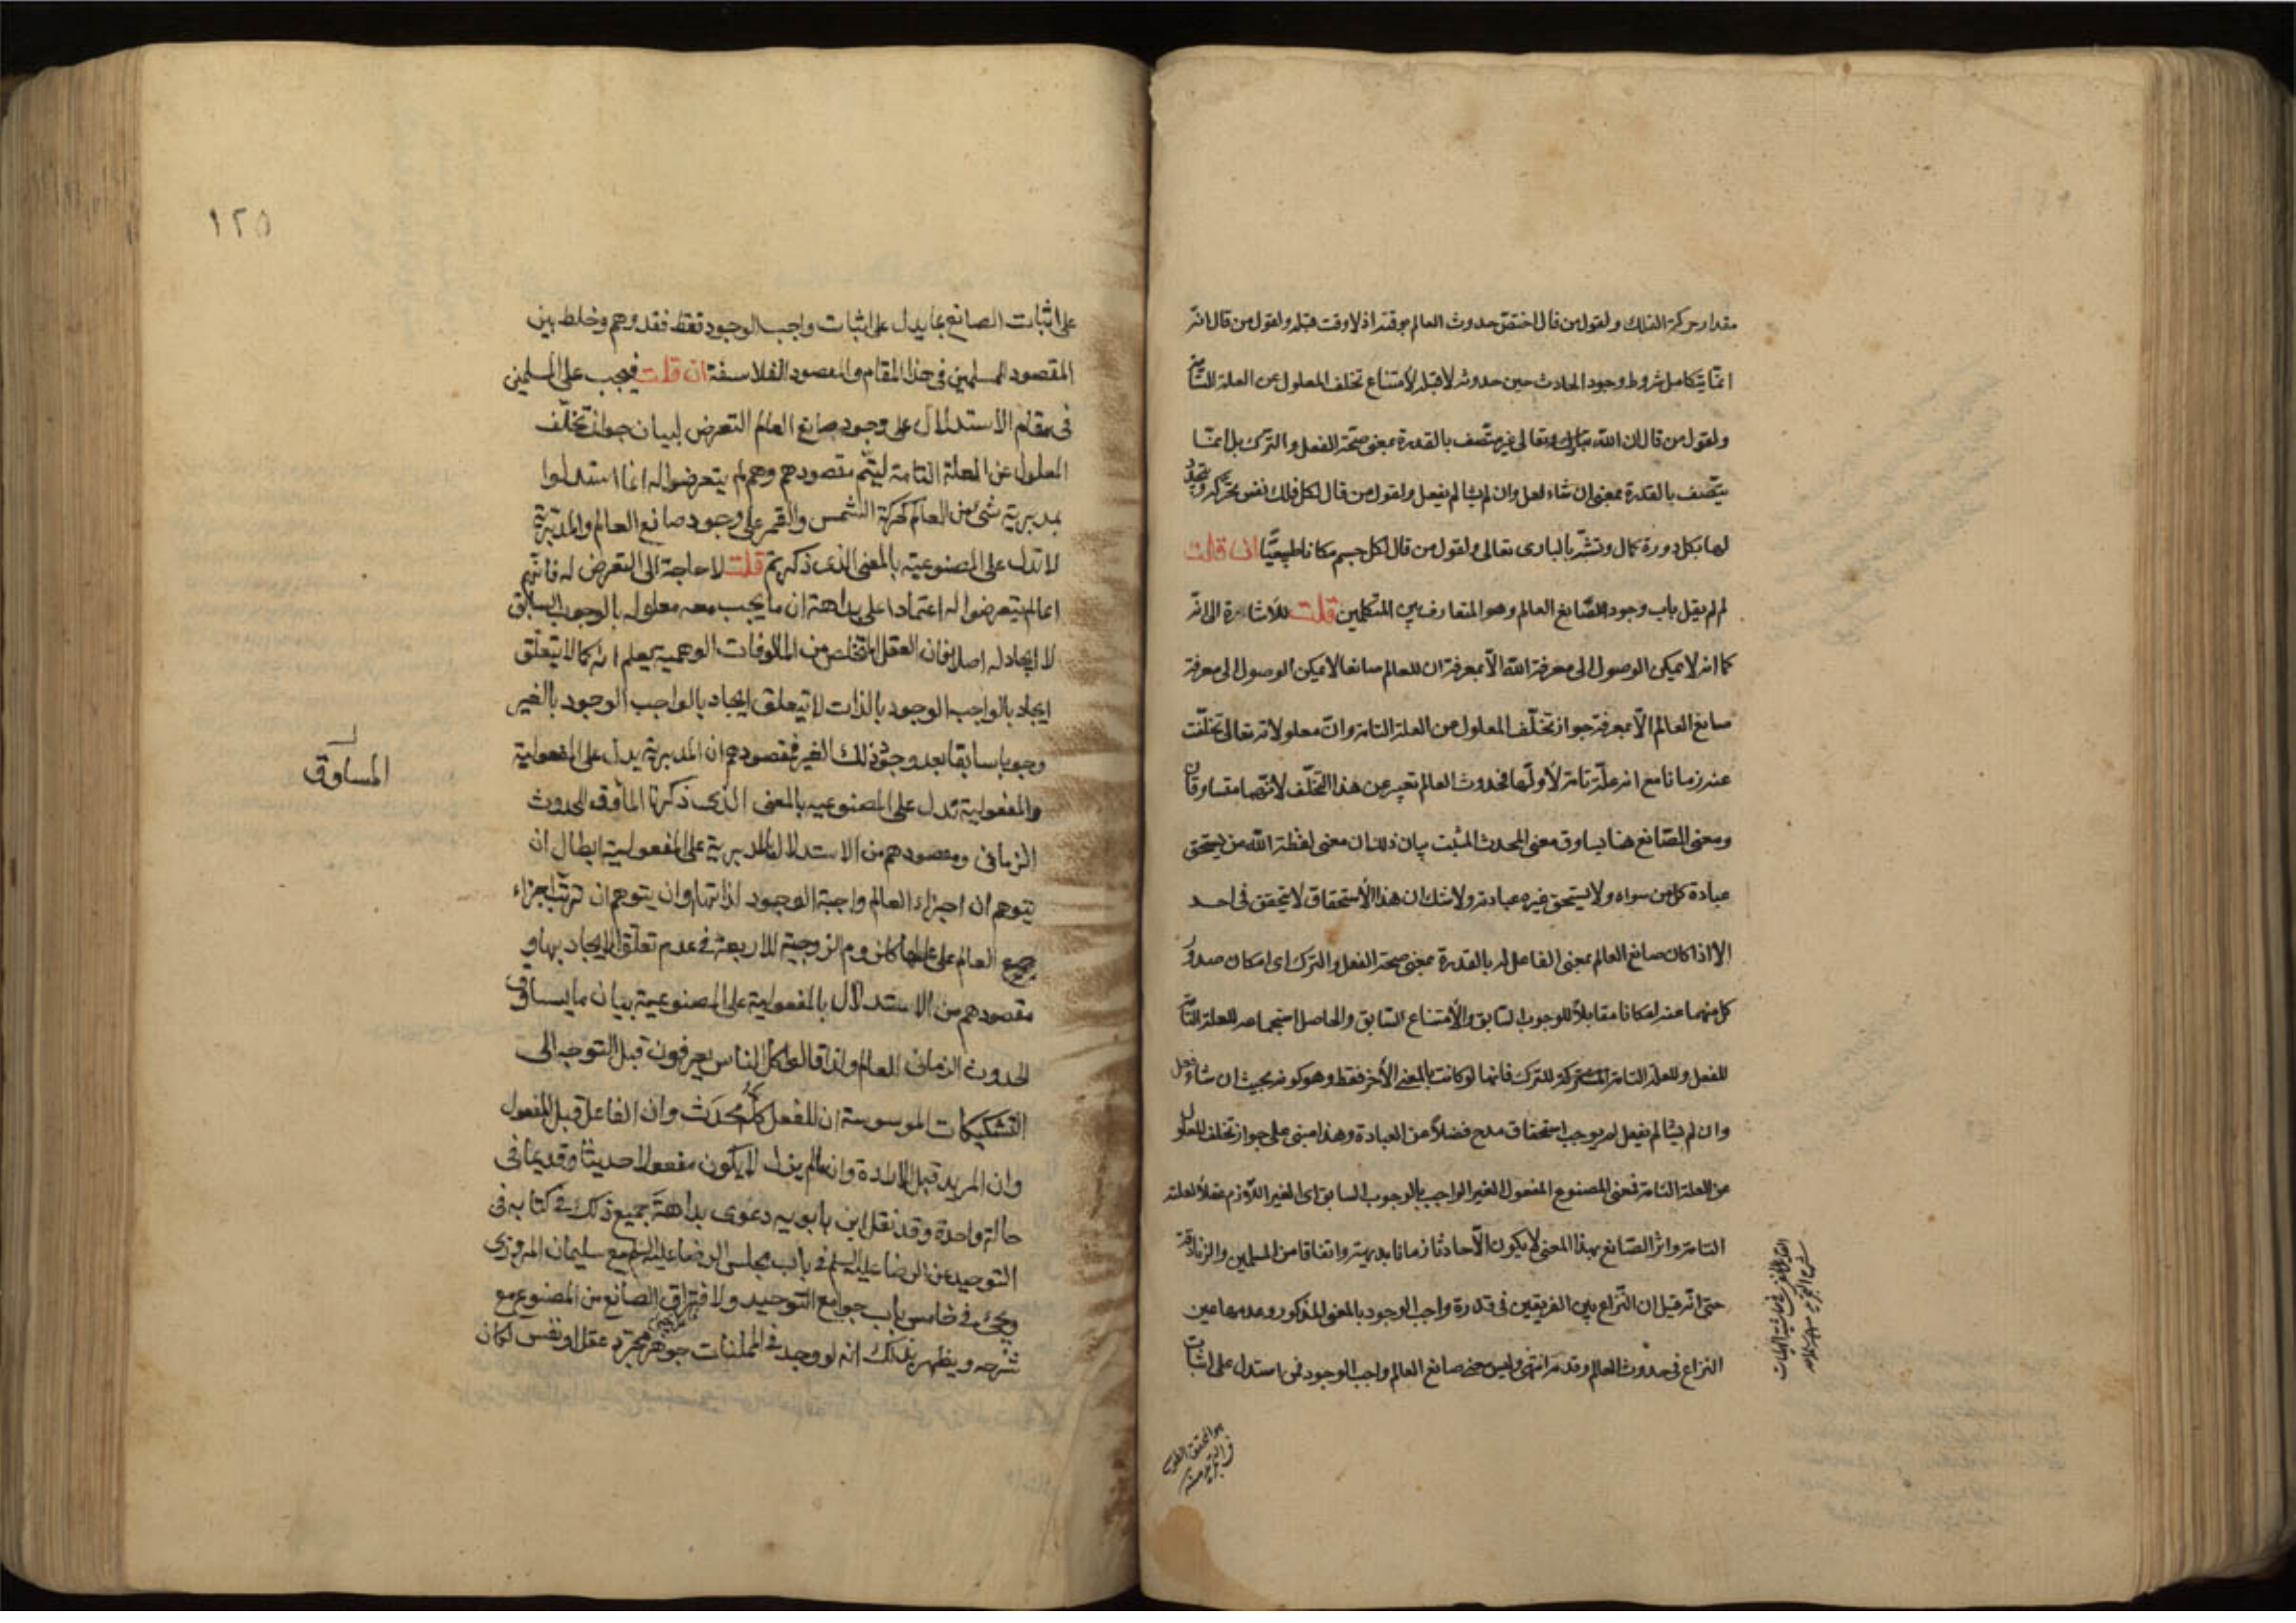 مقدار حركة الفلك ولقول من قال اختص حدوث العالم بوقته اذ لا وقت قبله ولقول من قال انه
انما يتكامل شروط وجود الحادث حين حدوثه لا قبله لامتناع تخلف المعلول عن العلة التامة
ولقول من قال ان الله تبارك وتعالى غير متصف بالقدرة بمعنى صحة الفعل والترك بل انما
يتصف بالقدرة بمعنى ان شاء فعل وان لم يشا لم يفعل ولقول من قال لكل فلك نفس تحركه ويتجدد
لها بكل دورة كمال وتشبه بالبارى تعالى ولقول من قال لكل جسم مكانا طبيعيا ان قلت
لم لم يقل باب وجود الصانع العالم وهو المتعارف بين المتكلمين قلت للاشارة الى انه
كما انه لا يمكن الوصول الى معرفة الله الا بمعرفة ان للعالم صانعا لا يمكن الوصول الى معرفة
صانع العالم الا بمعرفة جواز تخلف المعلول عن العلة التامة وان معلولاته تعالى تخلفت
عنه زمانا مع انه علة تامة لأولها فحدوث العالم تعبير عن هذا التخلف لانهما متساوقان
ومعنى الصانع هنا يساوق معنى المحدث المثبت بيان ذلك ان معنى لفظة الله من يستحق
عبادة كل من سواه ولا يستحق غيره عبادته ولا شك ان هذا الاستحقاق لا يتحقق فى احد
الا اذا كان صانع العالم بمعنى الفاعل له بالقدرة بمعنى صحة الفعل والترك اى امكان صدور
كل منهما عنه امكانا مقابلا للوجوب السابق والامتناع السابق والحاصل استجماعه للعلة التامة
للفعل وللعلة التامة المشتركة للترك فانها لو كانت بالمعنى الأخر فقط وهو كونه بحيث ان شاء فعل
وان لم يشا لم يفعل لم يوجب استحقاق مدح فضلا عن العبادة وهذا مبنى على جواز تخلف المعلول
عن العلة التامة فمعنى المصنوع المفعول الغير الواجب بالوجوب السابق اى الغير اللازم عقلا لعلته
التامة واثر الصانع بهذا المعنى لا يكون الا حادثا زمانا بديهة واتفاقا من المسلمين والزنادقة
حتى انه قيل ان النزاع بين الفريقين فى قدرة واجب الوجود بالمعنى المذكور وعدمها عين
النزاع فى حدوث العالم وقدمه انتهى وليس معنى صانع العالم واجب الوجود فمن استدل على اثبات
هو المحقق الطوسى
١٢٥
على اثبات الصانع بما يدل على اثبات واجب الوجود فقط فقد وهم وخلط بين
المقصود للمسلمين فى هذا المقام والمقصود للفلاسفة ان قلت فيجب على المسلمين
فى مقام الاستدلال على وجود صانع العالم التعرض لبيان جواز تخلف
المعلول عن العلة التامة ليتم مقصودهم وهم لم يتعرضوا له انما استدلوا
بمدبرية شئ من العالم كحركة الشمس والقمر على وجود صانع العالم والمدبرية
لا تدل على المصنوعية بالمعنى الذى ذكرتم قلت لا حاجة الى التعرض له فانهم
انما لم يتعرضوا له اعتمادا على بداهة ان ما يجب معه معلوله بالوجوب السابق
لا ايجاد له اصلا فان العقل المتخلص من المألوفات الوهمية يعلم انه كما لا يتعلق
ايجاد بالواجب الوجود بالذات لا يتعلق ايجاد بالواجب الوجود بالغير
وجوبا سابقا بعد وجود ذلك الغير فمقصودهم ان المدبرية يدل على المفعولية
والمفعولية تدل على المصنوعية بالمعنى الذى ذكرنا المأوق للحدوث
المساوق
الزمانى ومقصودهم من الاستدلال بالمدبرية على المفعولية ابطال ان
يتوهم ان اجزاء العالم واجبة الوجود لذاتها وان يتوهم ان ترتب اجزاء
العالم على عللها كلزوم الزوجية للاربعة فى عدم تعلق الايجاد بها و
مقصودهم من الاستدلال بالمفعولية على المصنوعية بيان ما يساوق
الحدوث الزمانى للعالم ولذا قالوا كل الناس يعرفون قبل التوجه الى
التشكيكات الموسوسة ان للفعل كله محدث وان الفاعل قبل المفعول
وان المريد قبل الارادة وان ما لم يزل لا يكون مفعولا حديثا وقديما فى
حالة واحدة وقد نقل ابن بابويه دعوى بداهة جميع ذلك فى كتابه فى
التوحيد عن الرضا عليه السلم فى باب مجلس الرضا عليه السلم مع سليمان المروزى
ويجئ فى خامس باب جوامع التوحيد ولافتراق الصانع من المصنوع مع
شرحه ويظهر بذلك انه لو وجد فى الممكنات جوهر مجرد عقل او نفس لكان